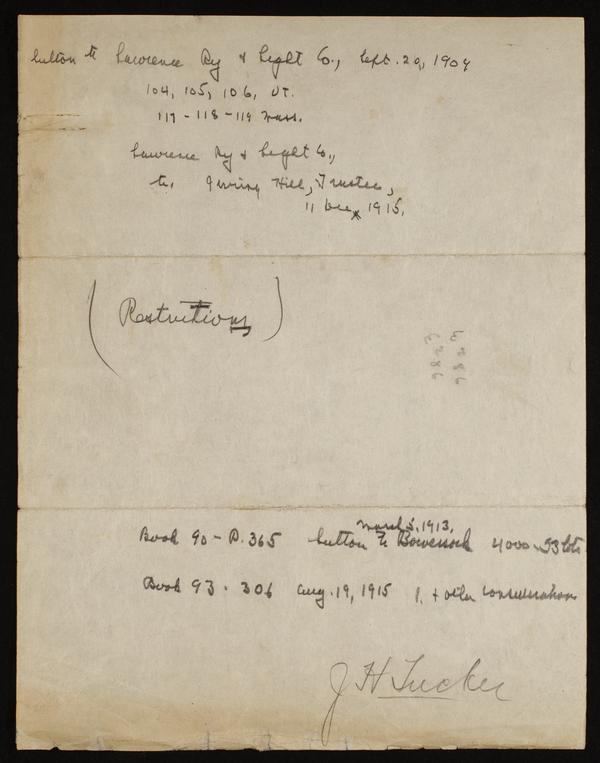 Sutton to Lawrence Ry & Light Co., Sept. 29, 1909
104, 105, 106, VT.
117 - 118 - 119 Mass.
Lawrence Ry & Light Co.,
to. Irving Hill, Trustee,
11 Dec, 1915.
(Restrictions)
9823
9823
March 5, 1913,
Book 90 - P. 365 Sutton to Bowersock 4000 53 lots
Book 93 - 306 Aug. 19, 1915 1. + other considerations
J H Tucker